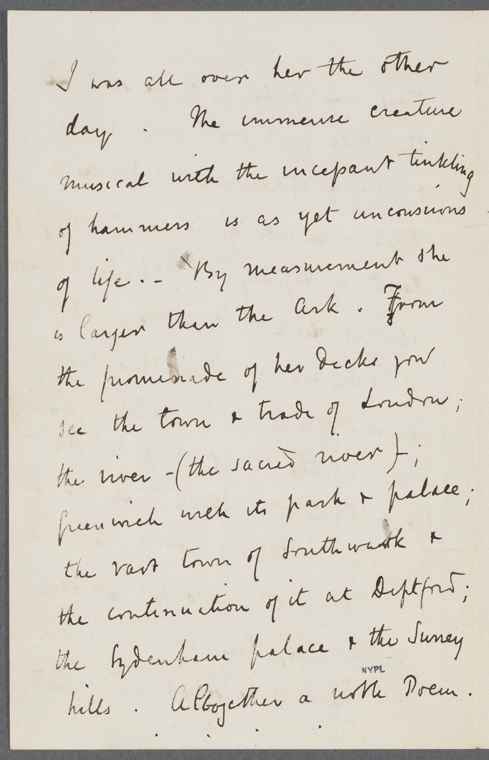 I was all over her the other
day. The immense creature
musical with the incessant tinkling
of hammers is as yet unconsious
of life. - By measurement she
is larger than the Ark. From
the promenade of her decks you
see the town & trade of London;
the river - (the sacred river) -;
Greenwich with its park & palace;
the vast town of Southwark &
the continuation of it at Deptford;
the Sydenham palace & the Surrey
NYPL
hills. Altogether a noble Poem.